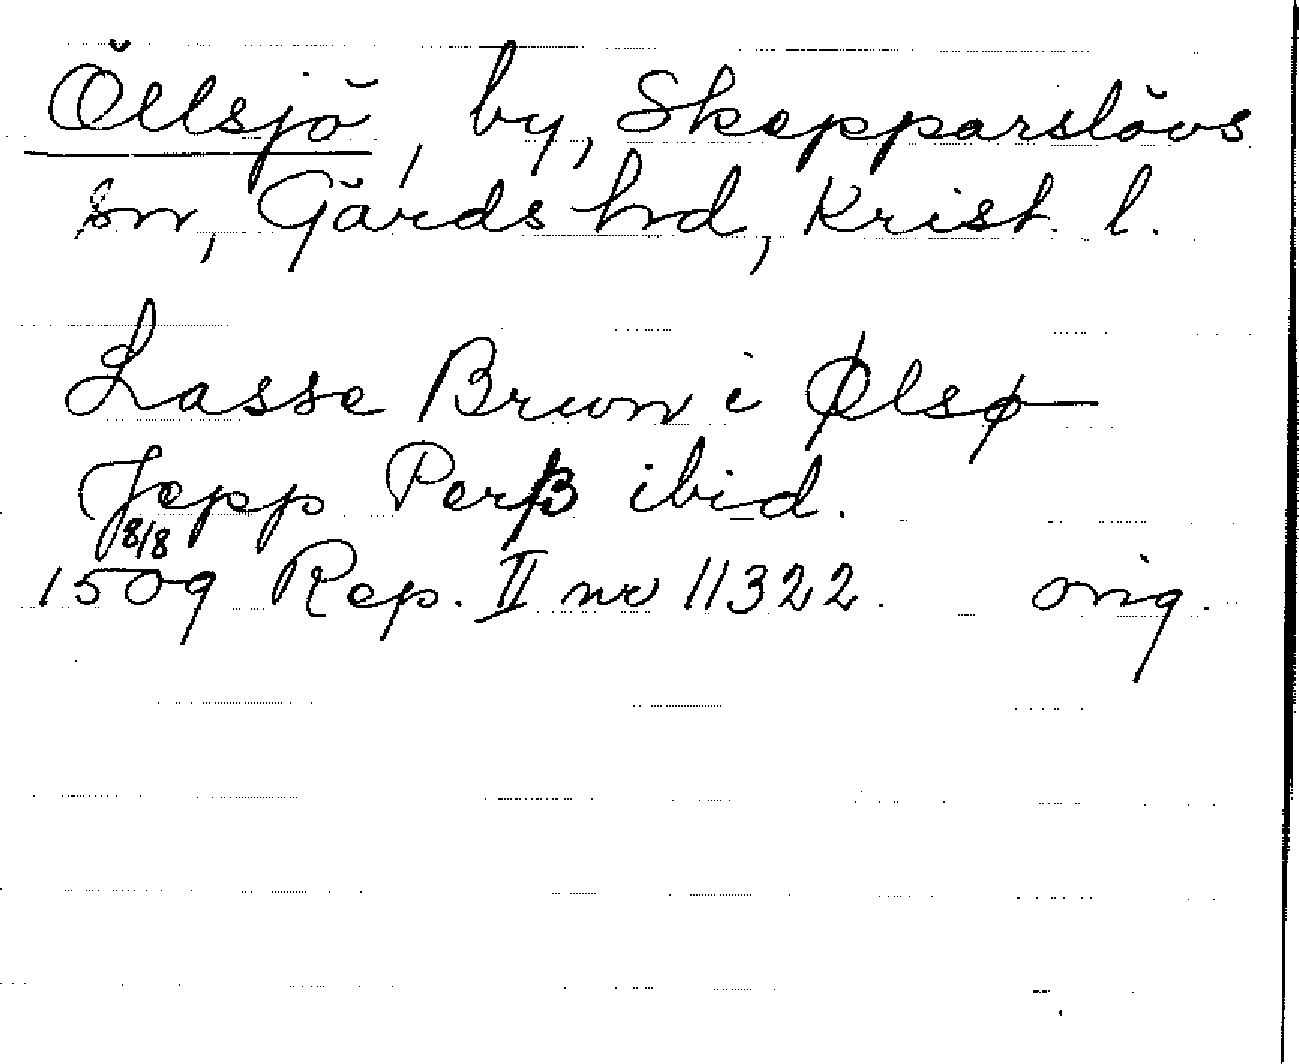 Öllsjö, by, Skepparslövs
sn, Gärds hrd, Krist. l.
Lasse Brwn i Ølsø
Jepp Perß ibid.
8/8
1509 Rep. II nr 11322. orig.